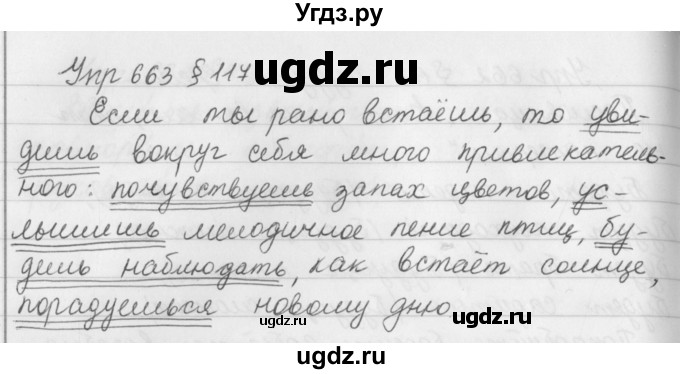 Угдз.ру
Упр 663 § 117
ugdz.ru
Если ты рано встаёшь, то уви-
дишь вокруг себя много привлекатель-
ного: почувствуешь запах цветов, ус-
лышишь мелодичное пение птиц, бу-
дешь наблюдать, как встаёт солнце,
порадуешься новому дню
ugdz.ru
ugdz.ru
ugdz.ru